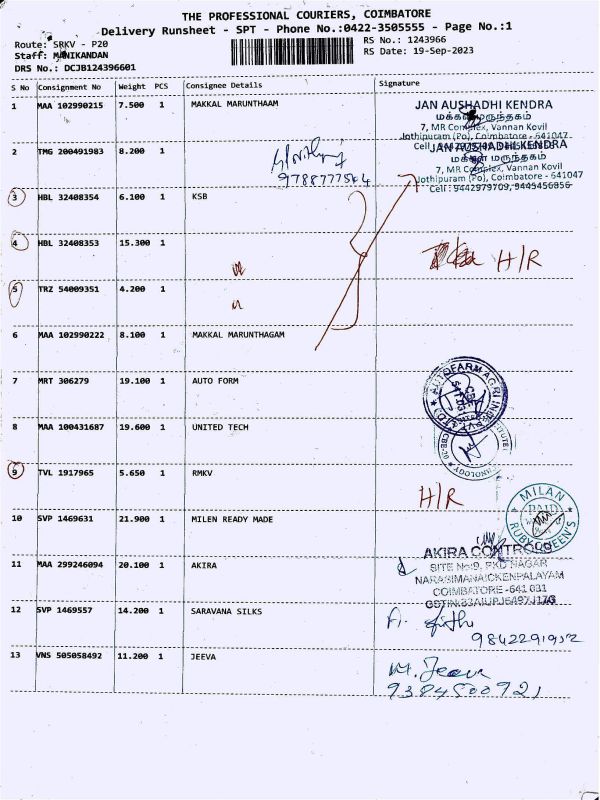 THE PROFESSIONAL COURIERS, COIMBATORE
Delivery Runsheet - SPT - Phone No.:0422-3505555 - Page No.:1
Route: SRKV - P20
RS No.: 1243966
Staff: MANIKANDAN
RS Date: 19-Sep-2023
DRS No.: DCJB124396601
S No Consignment No Weight PCS Consignee Details Signature
1 MAA 102990215 7.500 1 MAKKAL MARUNTHAAM
JAN AUSHADHI KENDRA
மக்கள் மருந்தகம்
7, MR Complex, Vannan Kovil
Jothipuram (Po), Coimbatore - 641047
2 TMG 200491983 8.200 1
9788777564
JAN AUSHADHI KENDRA
மக்கள் மருந்தகம்
7, MR Complex, Vannan Kovil
Jothipuram (Po), Coimbatore - 641047
Cell : 9442979709, 9445456856
3 HBL 32408354 6.100 1 KSB
4 HBL 32408353 15.300 1
H/R
5 TRZ 54009351 4.200 1
6 MAA 102990222 8.100 1 MAKKAL MARUNTHAGAM
7 MRT 306279 19.100 1 AUTO FORM
8 MAA 100431687 19.600 1 UNITED TECH
9 TVL 1917965 5.650 1 RMKV
H/R
10 SVP 1469631 21.900 1 MILEN READY MADE
MILAN
PAID
RUBY QUEEN'S
11 MAA 299246094 20.100 1 AKIRA
AKIRA CONTROLS
SITE No:9, PKD NAGAR
NARASIMANAICKENPALAYAM
COIMBATORE -641 031
12 SVP 1469557 14.200 1 SARAVANA SILKS
9842291952
13 VNS 505058492 11.200 1 JEEVA
M. Jeeva
9384500721